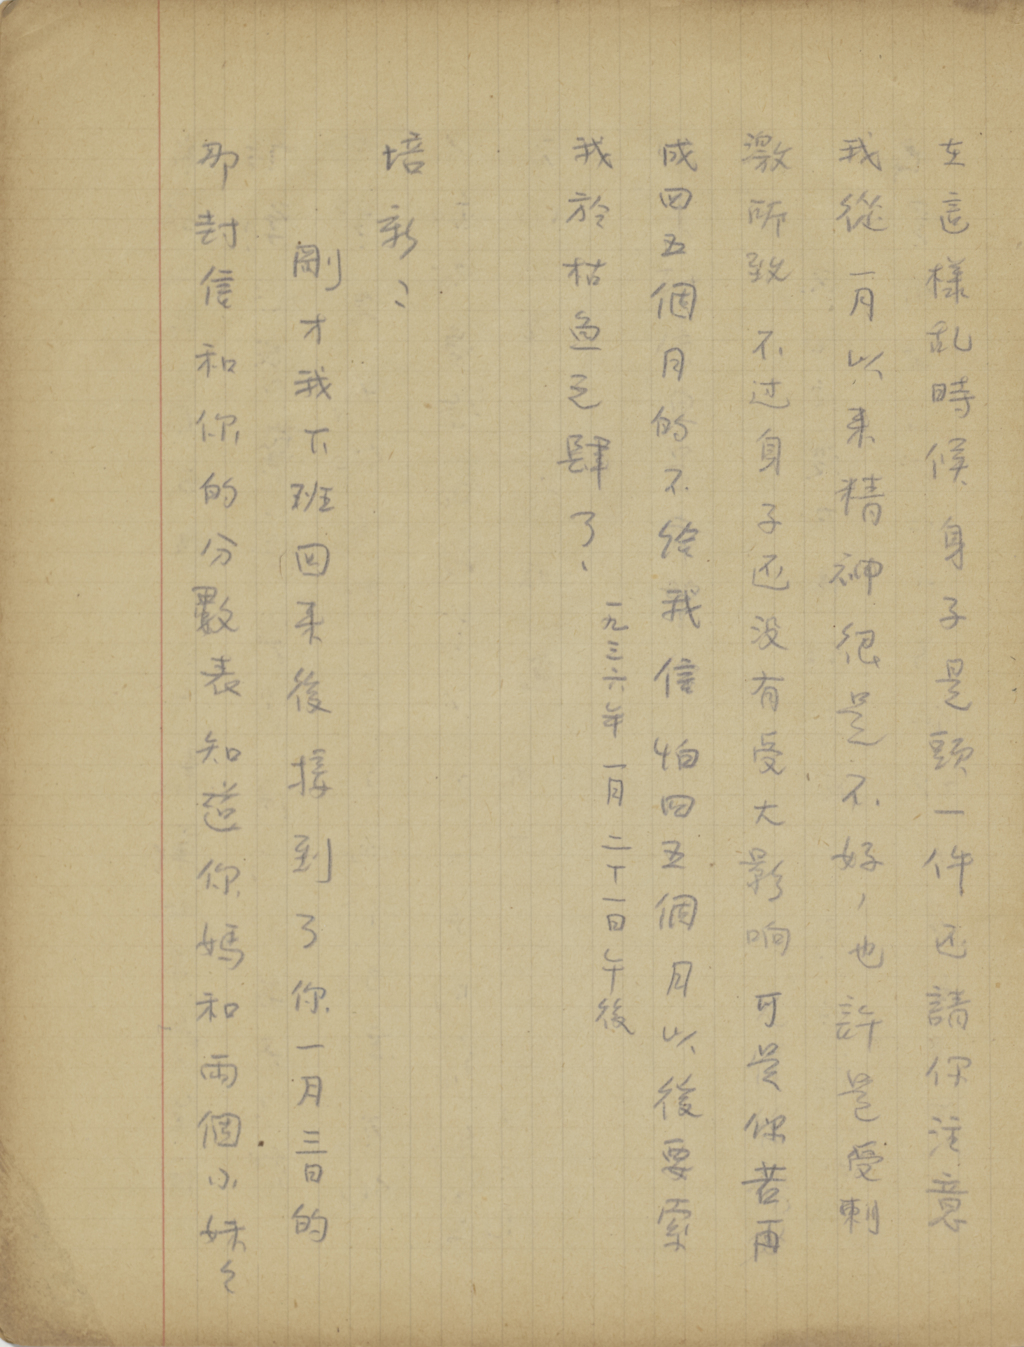 在這樣乱時候身子是頭一件还請你注意
我從一月以来精神很是不好，也許是受刺
激所致 不过身子还没有受大影响 可是你若再
成四五個月的不給我信怕四五個月以後要索
我於枯魚之肆了、
一九三六年一月二十一日午後
培新：
剛才我下班回来後接到了你一月三日的
那封信和你的分數表知道你媽和兩個小妹々